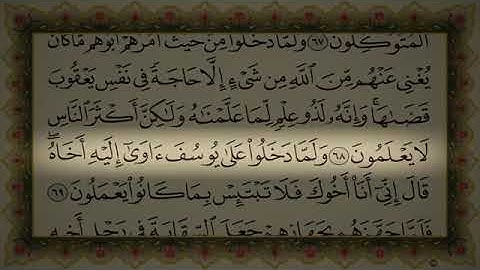 ٱلْمُتَوَكِّلُونَ ٦٧ وَلَمَّا دَخَلُوا۟ مِنْ حَيْثُ أَمَرَهُمْ أَبُوهُم مَّا كَانَ
يُغْنِى عَنْهُم مِّنَ ٱللَّهِ مِن شَىْءٍ إِلَّا حَاجَةً فِى نَفْسِ يَعْقُوبَ
قَضَىٰهَا ۚ وَإِنَّهُۥ لَذُو عِلْمٍ لِّمَا عَلَّمْنَٰهُ وَلَٰكِنَّ أَكْثَرَ ٱلنَّاسِ
لَا يَعْلَمُونَ ٦٨ وَلَمَّا دَخَلُوا۟ عَلَىٰ يُوسُفَ ءَاوَىٰٓ إِلَيْهِ أَخَاهُ ۖ
قَالَ إِنِّىٓ أَنَا۠ أَخُوكَ فَلَا تَبْتَئِسْ بِمَا كَانُوا۟ يَعْمَلُونَ ٦٩
فَلَمَّا جَهَّزَهُم بِجَهَازِهِمْ جَعَلَ ٱلسِّقَايَةَ فِى رَحْلِ أَخِيهِ